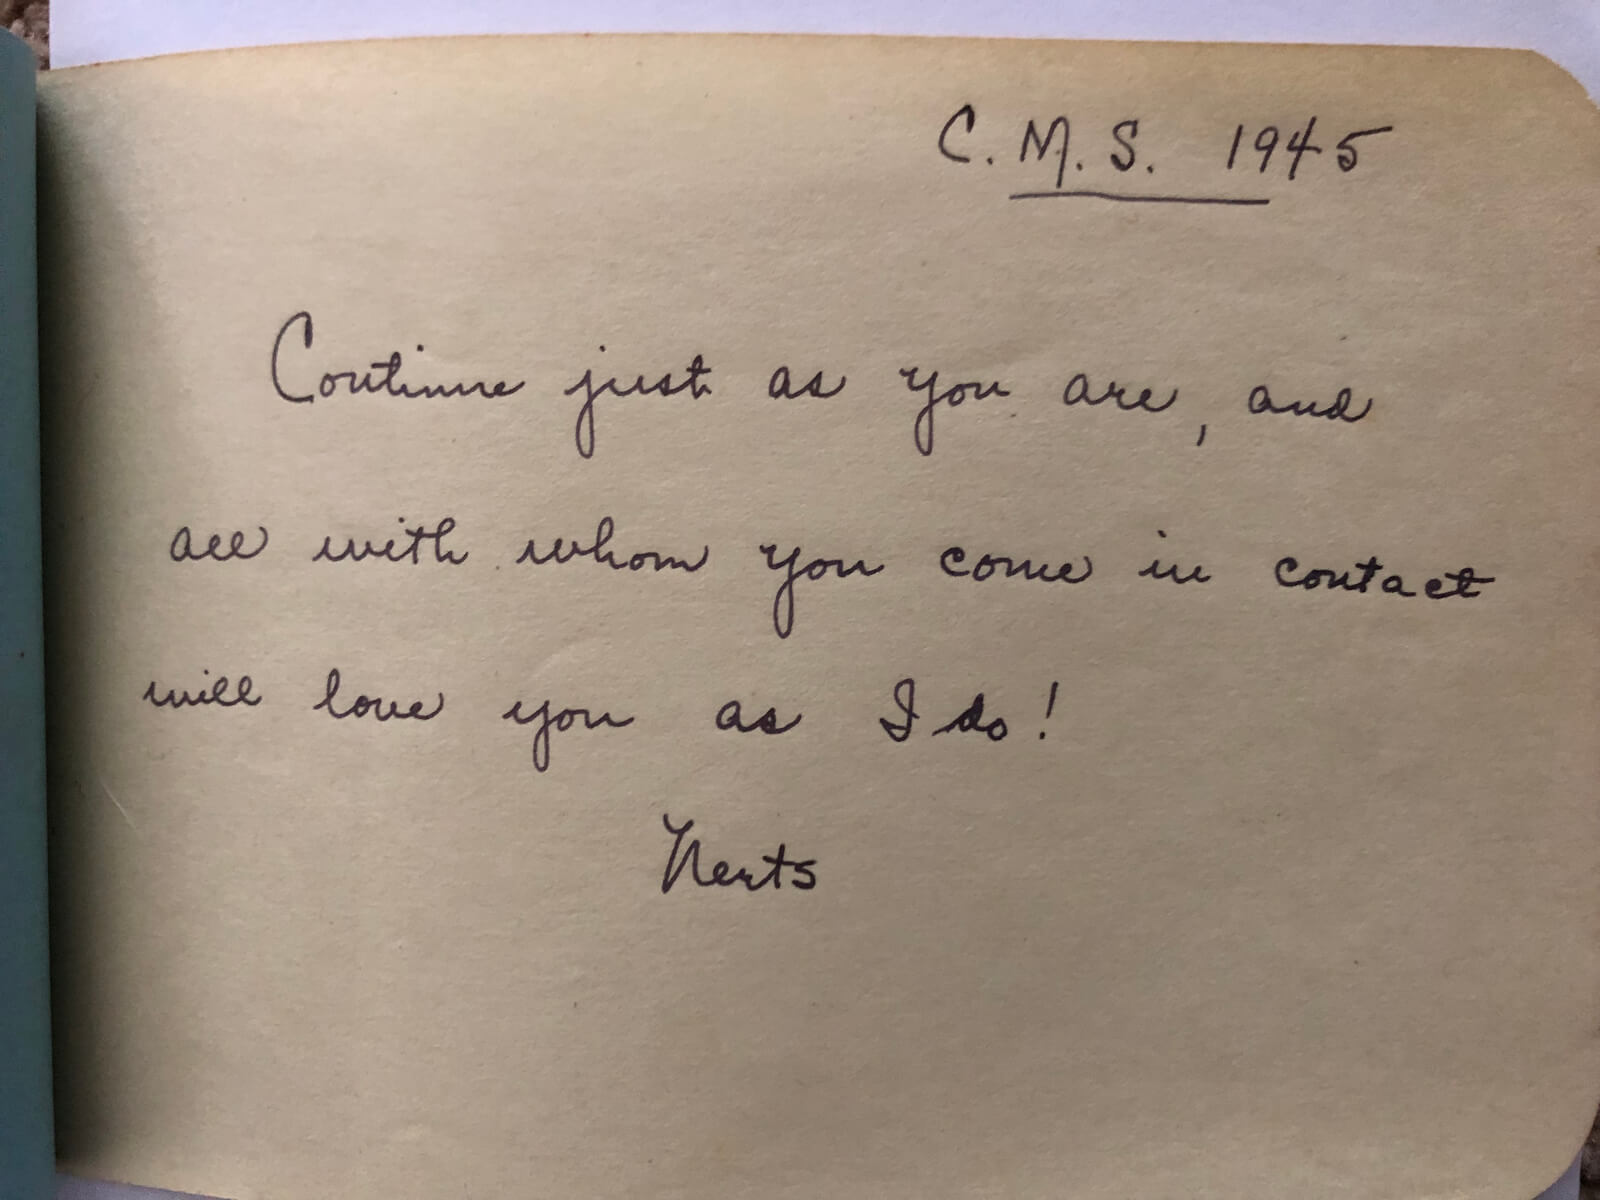 C. M. S. 1945
Continue just as you are, and
all with whom you come in contact
will love you as I do!
Nerts